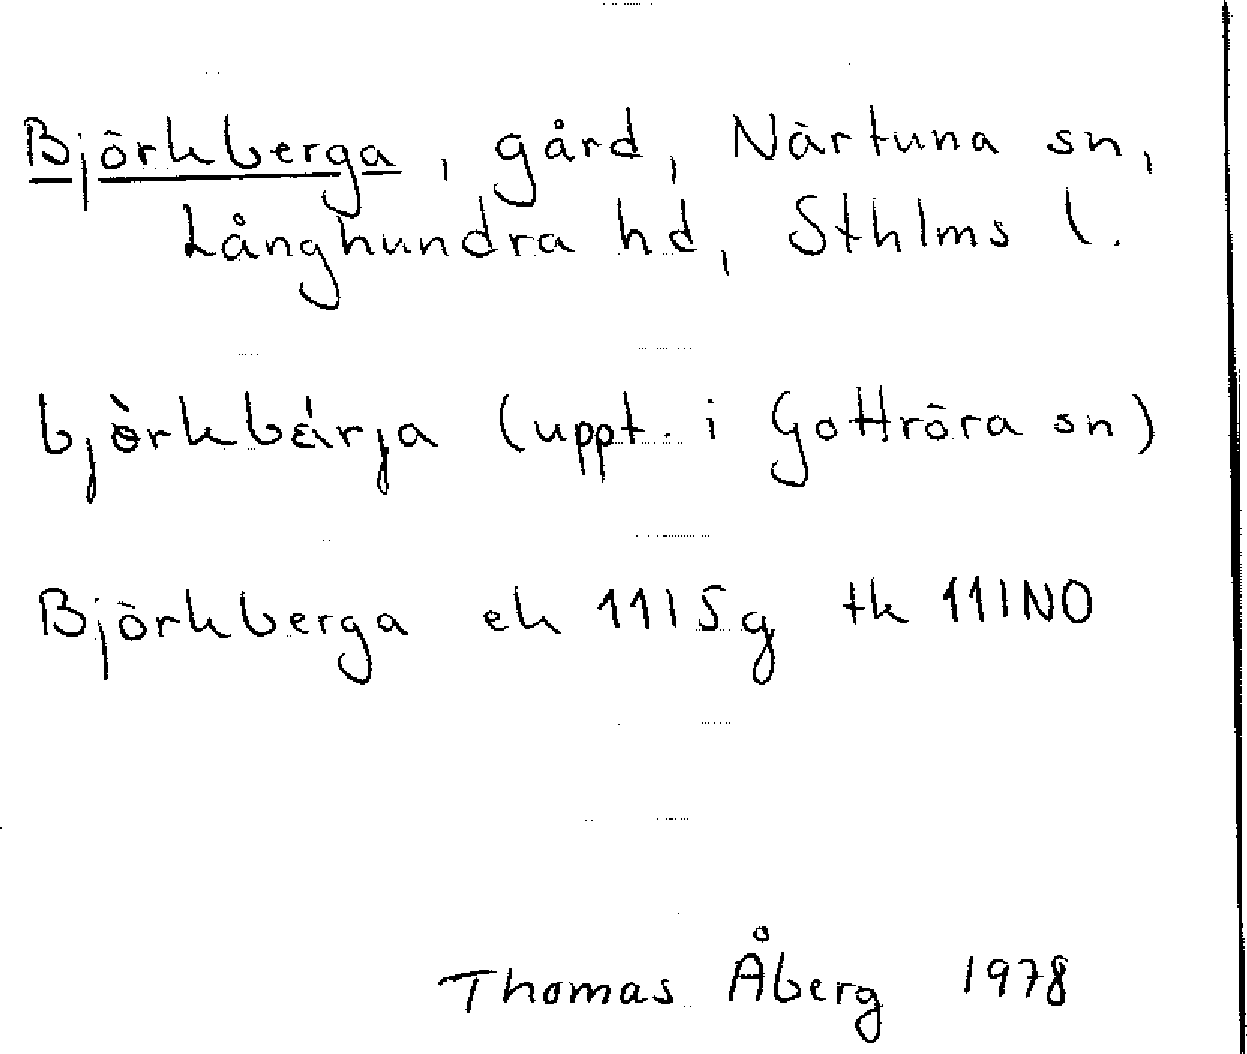 Björkberga, gård, Närtuna sn,
Långhundra hd, Sthlms l.
bjə̀rkbárja (uppt. i Gottröra sn)
Björkberga ek 11I5g tk 11INO
Thomas Åberg 1978